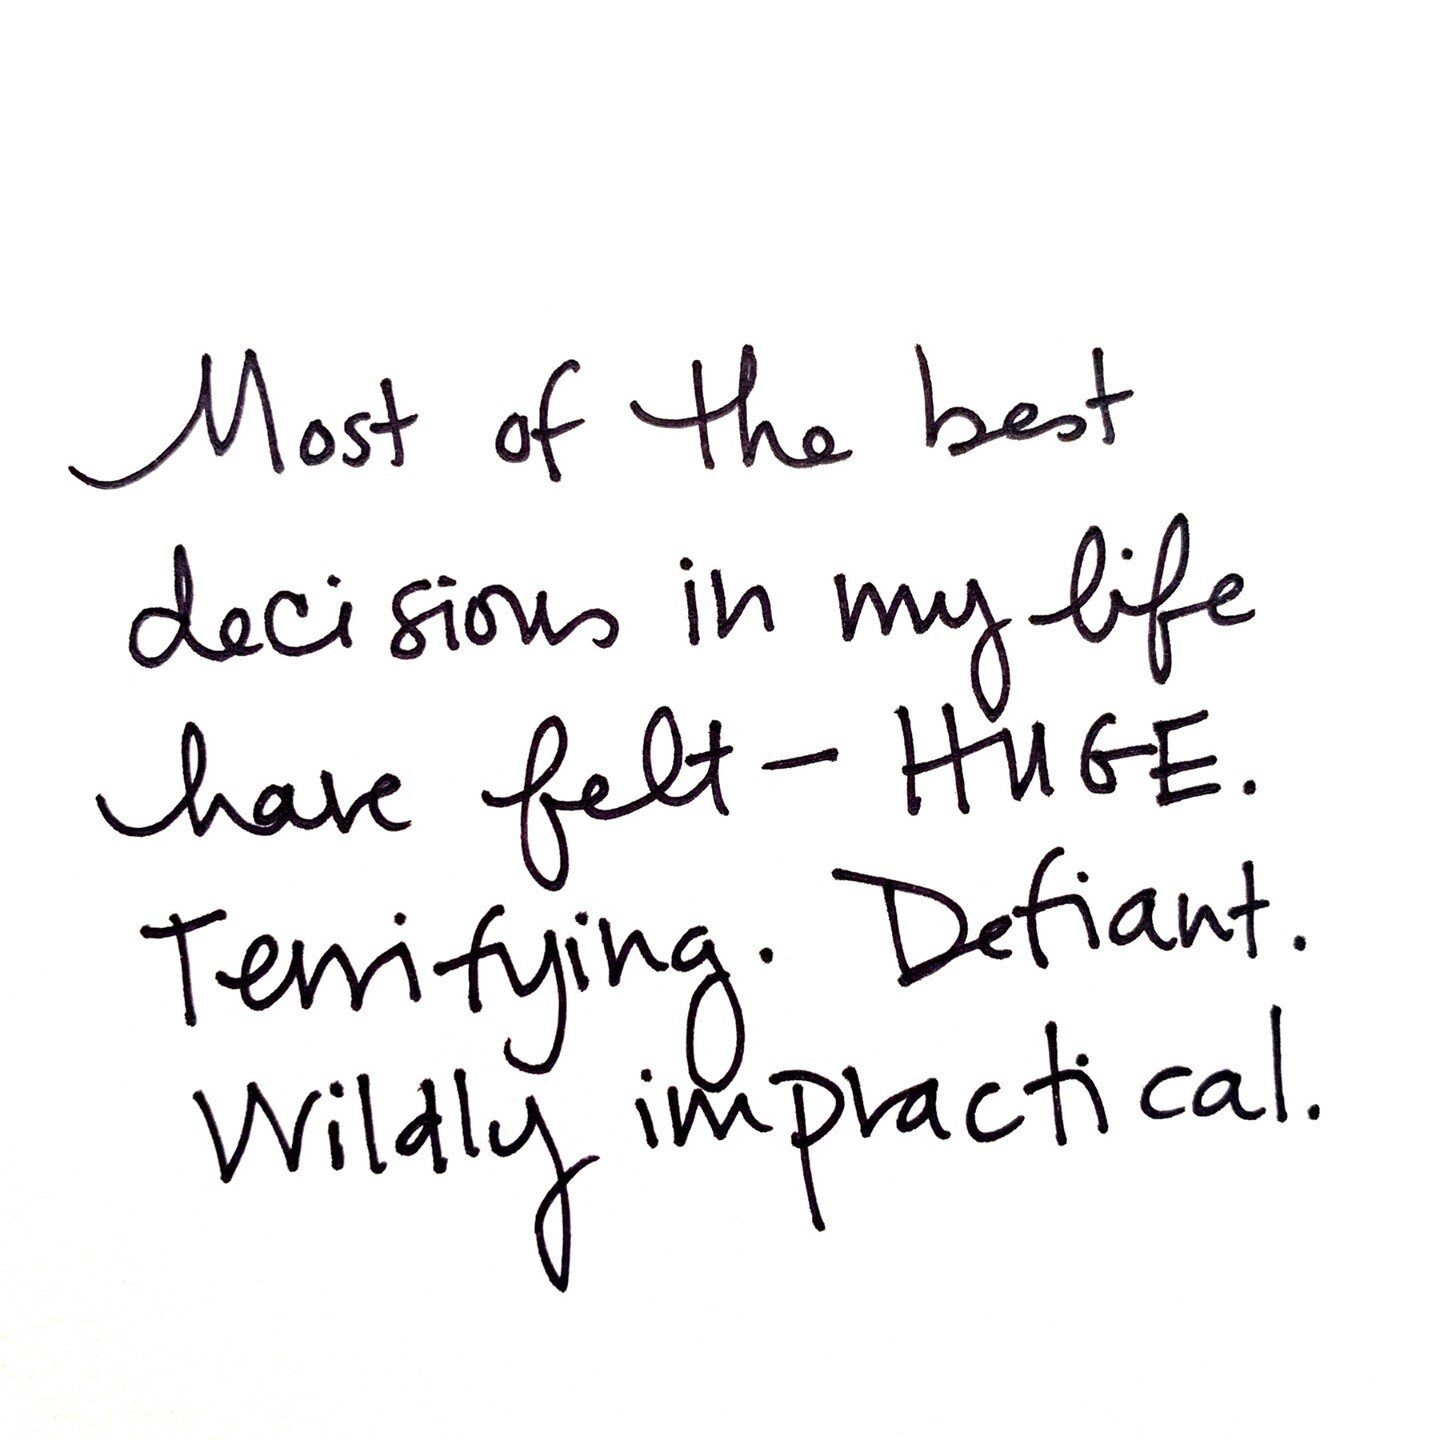 Most of the best
decisions in my life
have felt — HUGE.
Terrifying. Defiant.
Wildly impractical.